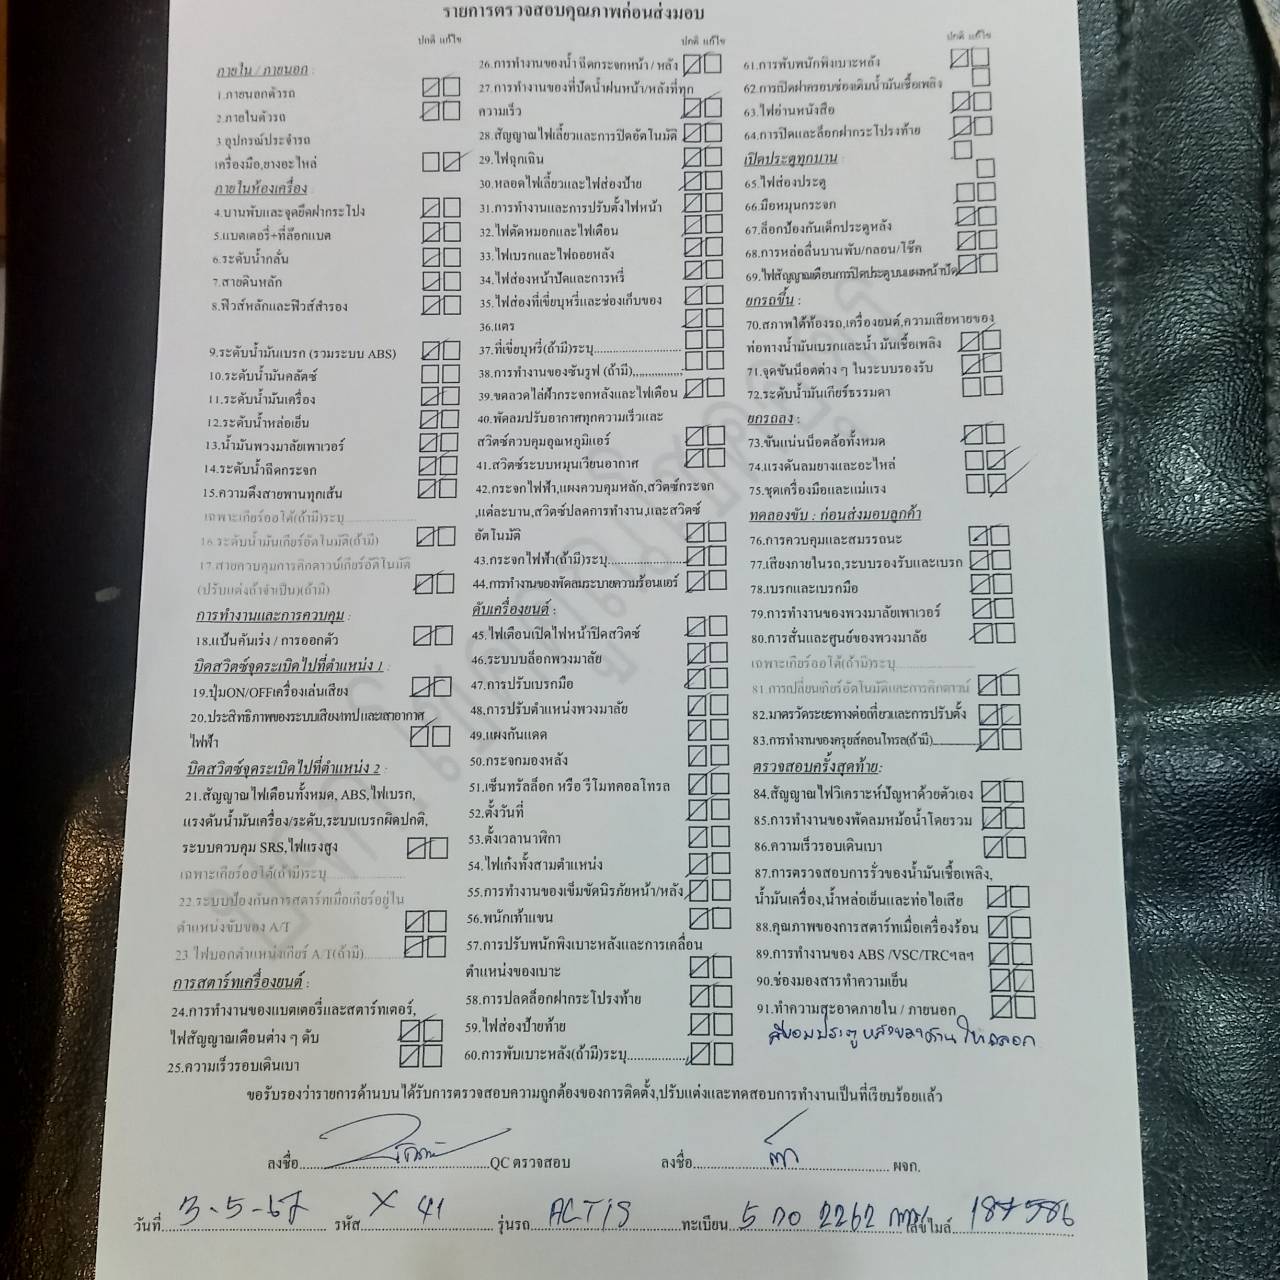 รายการตรวจสอบคุณภาพก่อนส่งมอบ
ปกติ แก้ไข
ภายใน / ภายนอก :
1.ภายนอกตัวรถ
2.ภายในตัวรถ
3.อุปกรณ์ประจำรถ
เครื่องมือ,ยางอะไหล่
ภายในห้องเครื่อง
4.บานพับและจุดยึดฝากระโปง
5.แบตเตอรี่+ที่ล็อกแบต
6.ระดับน้ำกลั่น
7.สายดินหลัก
8.ฟิวส์หลักและฟิวส์สำรอง
9.ระดับน้ำมันเบรก (รวมระบบ ABS)
10.ระดับน้ำมันคลัตช์
11.ระดับน้ำมันเครื่อง
12.ระดับน้ำหล่อเย็น
13.น้ำมันพวงมาลัยเพาเวอร์
14.ระดับน้ำฉีดกระจก
15.ความตึงสายพานทุกเส้น
เฉพาะเกียร์ออโต้(ถ้ามี)ระบุ....................
16.ระดับน้ำมันเกียร์อัตโนมัติ(ถ้ามี)
17.สายควบคุมการคิกดาวน์เกียร์อัตโนมัติ
(ปรับแต่งถ้าจำเป็น)(ถ้ามี)
การทำงานและการควบคุม :
18.แป้นคันเร่ง / การออกตัว
บิดสวิตซ์จุดระเบิดไปที่ตำแหน่ง 1 :
19.ปุ่มON/OFFเครื่องเล่นเสียง
20.ประสิทธิภาพของระบบเสียง/เทปและเสาอากาศ
ไฟฟ้า
บิดสวิตซ์จุดระเบิดไปที่ตำแหน่ง 2 :
21.สัญญาณไฟเตือนทั้งหมด, ABS,ไฟเบรก,
แรงดันน้ำมันเครื่อง/ระดับ,ระบบเบรกผิดปกติ,
ระบบควบคุม SRS,ไฟแรงสูง
เฉพาะเกียร์ออโต้(ถ้ามี)ระบุ....................
22.ระบบป้องกันการสตาร์ทเมื่อเกียร์อยู่ใน
ตำแหน่งขับของ A/T
23 ไฟบอกตำแหน่งเกียร์ A/T(ถ้ามี)..........
การสตาร์ทเครื่องยนต์ :
24.การทำงานของแบตเตอรี่และสตาร์ทเตอร์,
ไฟสัญญาณเตือนต่าง ๆ ดับ
25.ความเร็วรอบเดินเบา
ปกติ แก้ไข
26.การทำงานของน้ำ ฉีดกระจกหน้า / หลัง
27.การทำงานของที่ปัดน้ำฝนหน้า/หลังที่ทุก
ความเร็ว
28.สัญญาณไฟเลี้ยวและการปิดอัตโนมัติ
29.ไฟฉุกเฉิน
30.หลอดไฟเลี้ยวและไฟส่องป้าย
31.การทำงานและการปรับตั้งไฟหน้า
32.ไฟตัดหมอกและไฟเตือน
33.ไฟเบรกและไฟถอยหลัง
34.ไฟส่องหน้าปัดและการหรี่
35.ไฟส่องที่เขี่ยบุหรี่และช่องเก็บของ
36.แตร
37.ที่เขี่ยบุหรี่(ถ้ามี)ระบุ....................
38.การทำงานของซันรูฟ (ถ้ามี)................
39.ขดลวดไล่ฝ้ากระจกหลังและไฟเตือน
40.พัดลมปรับอากาศทุกความเร็วและ
สวิตซ์ควบคุมอุณหภูมิแอร์
41.สวิตซ์ระบบหมุนเวียนอากาศ
42.กระจกไฟฟ้า,แผงควบคุมหลัก,สวิตซ์กระจก
,แต่ละบาน,สวิตซ์ปลดการทำงาน,และสวิตซ์
อัตโนมัติ
43.กระจกไฟฟ้า(ถ้ามี)ระบุ....................
44.การทำงานของพัดลมระบายความร้อนแอร์
ดับเครื่องยนต์ :
45.ไฟเตือนเปิดไฟหน้าปิดสวิตซ์
46.ระบบบล็อกพวงมาลัย
47.การปรับเบรกมือ
48.การปรับตำแหน่งพวงมาลัย
49.แผงกันแดด
50.กระจกมองหลัง
51.เซ็นทรัลล็อก หรือ รีโมทคอลโทรล
52.ตั้งวันที่
53.ตั้งเวลานาฬิกา
54.ไฟเก๋งทั้งสามตำแหน่ง
55.การทำงานของเข็มขัดนิรภัยหน้า/หลัง
56.พนักเท้าแขน
57.การปรับพนักพิงเบาะหลังและการเคลื่อน
ตำแหน่งของเบาะ
58.การปลดล็อกฝากระโปรงท้าย
59.ไฟส่องป้ายท้าย
60.การพับเบาะหลัง(ถ้ามี)ระบุ...............
ปกติ แก้ไข
61.การพับพนักพิงเบาะหลัง
62.การเปิดฝาครอบช่องเติมน้ำมันเชื้อเพลิง
63.ไฟอ่านหนังสือ
64.การปิดและล็อกฝากระโปรงท้าย
เปิดประตูทุกบาน :
65.ไฟส่องประตู
66.มือหมุนกระจก
67.ล็อกป้องกันเด็กประตูหลัง
68.การหล่อลื่นบานพับ/กลอน/โช๊ค
69.ไฟสัญญาณเตือนการปิดประตูบนแผงหน้าปัด
ยกรถขึ้น :
70.สภาพใต้ท้องรถ,เครื่องยนต์,ความเสียหายของ
ท่อทางน้ำมันเบรกและน้ำ มันเชื้อเพลิง
71.จุดขันน็อตต่าง ๆ ในระบบรองรับ
72.ระดับน้ำมันเกียร์ธรรมดา
ยกรถลง :
73.ขันแน่นน็อตล้อทั้งหมด
74.แรงดันลมยางและอะไหล่
75.ชุดเครื่องมือและแม่แรง
ทดลองขับ : ก่อนส่งมอบลูกค้า
76.การควบคุมและสมรรถนะ
77.เสียงภายในรถ,ระบบรองรับและเบรก
78.เบรกและเบรกมือ
79.การทำงานของพวงมาลัยเพาเวอร์
80.การสั่นและศูนย์ของพวงมาลัย
เฉพาะเกียร์ออโต้(ถ้ามี)ระบุ....................
81.การเปลี่ยนเกียร์อัตโนมัติและการคิกดาวน์
82.มาตรวัดระยะทางต่อเที่ยวและการปรับตั้ง
83.การทำงานของครุยส์คอนโทรล(ถ้ามี)..........
ตรวจสอบครั้งสุดท้าย:
84.สัญญาณไฟวิเคราะห์ปัญหาด้วยตัวเอง
85.การทำงานของพัดลมหม้อน้ำโดยรวม
86.ความเร็วรอบเดินเบา
87.การตรวจสอบการรั่วของน้ำมันเชื้อเพลิง,
น้ำมันเครื่อง,น้ำหล่อเย็นและท่อไอเสีย
88.คุณภาพของการสตาร์ทเมื่อเครื่องร้อน
89.การทำงานของ ABS /VSC/TRCฯลฯ
90.ช่องมองสารทำความเย็น
91.ทำความสะอาดภายใน / ภายนอก
ขอรับรองว่ารายการด้านบนได้รับการตรวจสอบความถูกต้องของการติดตั้ง,ปรับแต่งและทดสอบการทำงานเป็นที่เรียบร้อยแล้ว
ลงชื่อ....................QC ตรวจสอบ ลงชื่อ.................... ผจก.
วันที่ 3-5-67 รหัส X 41 รุ่นรถ ACTIS ทะเบียน 5 กอ 2262 กทม เลขไมล์ 187586